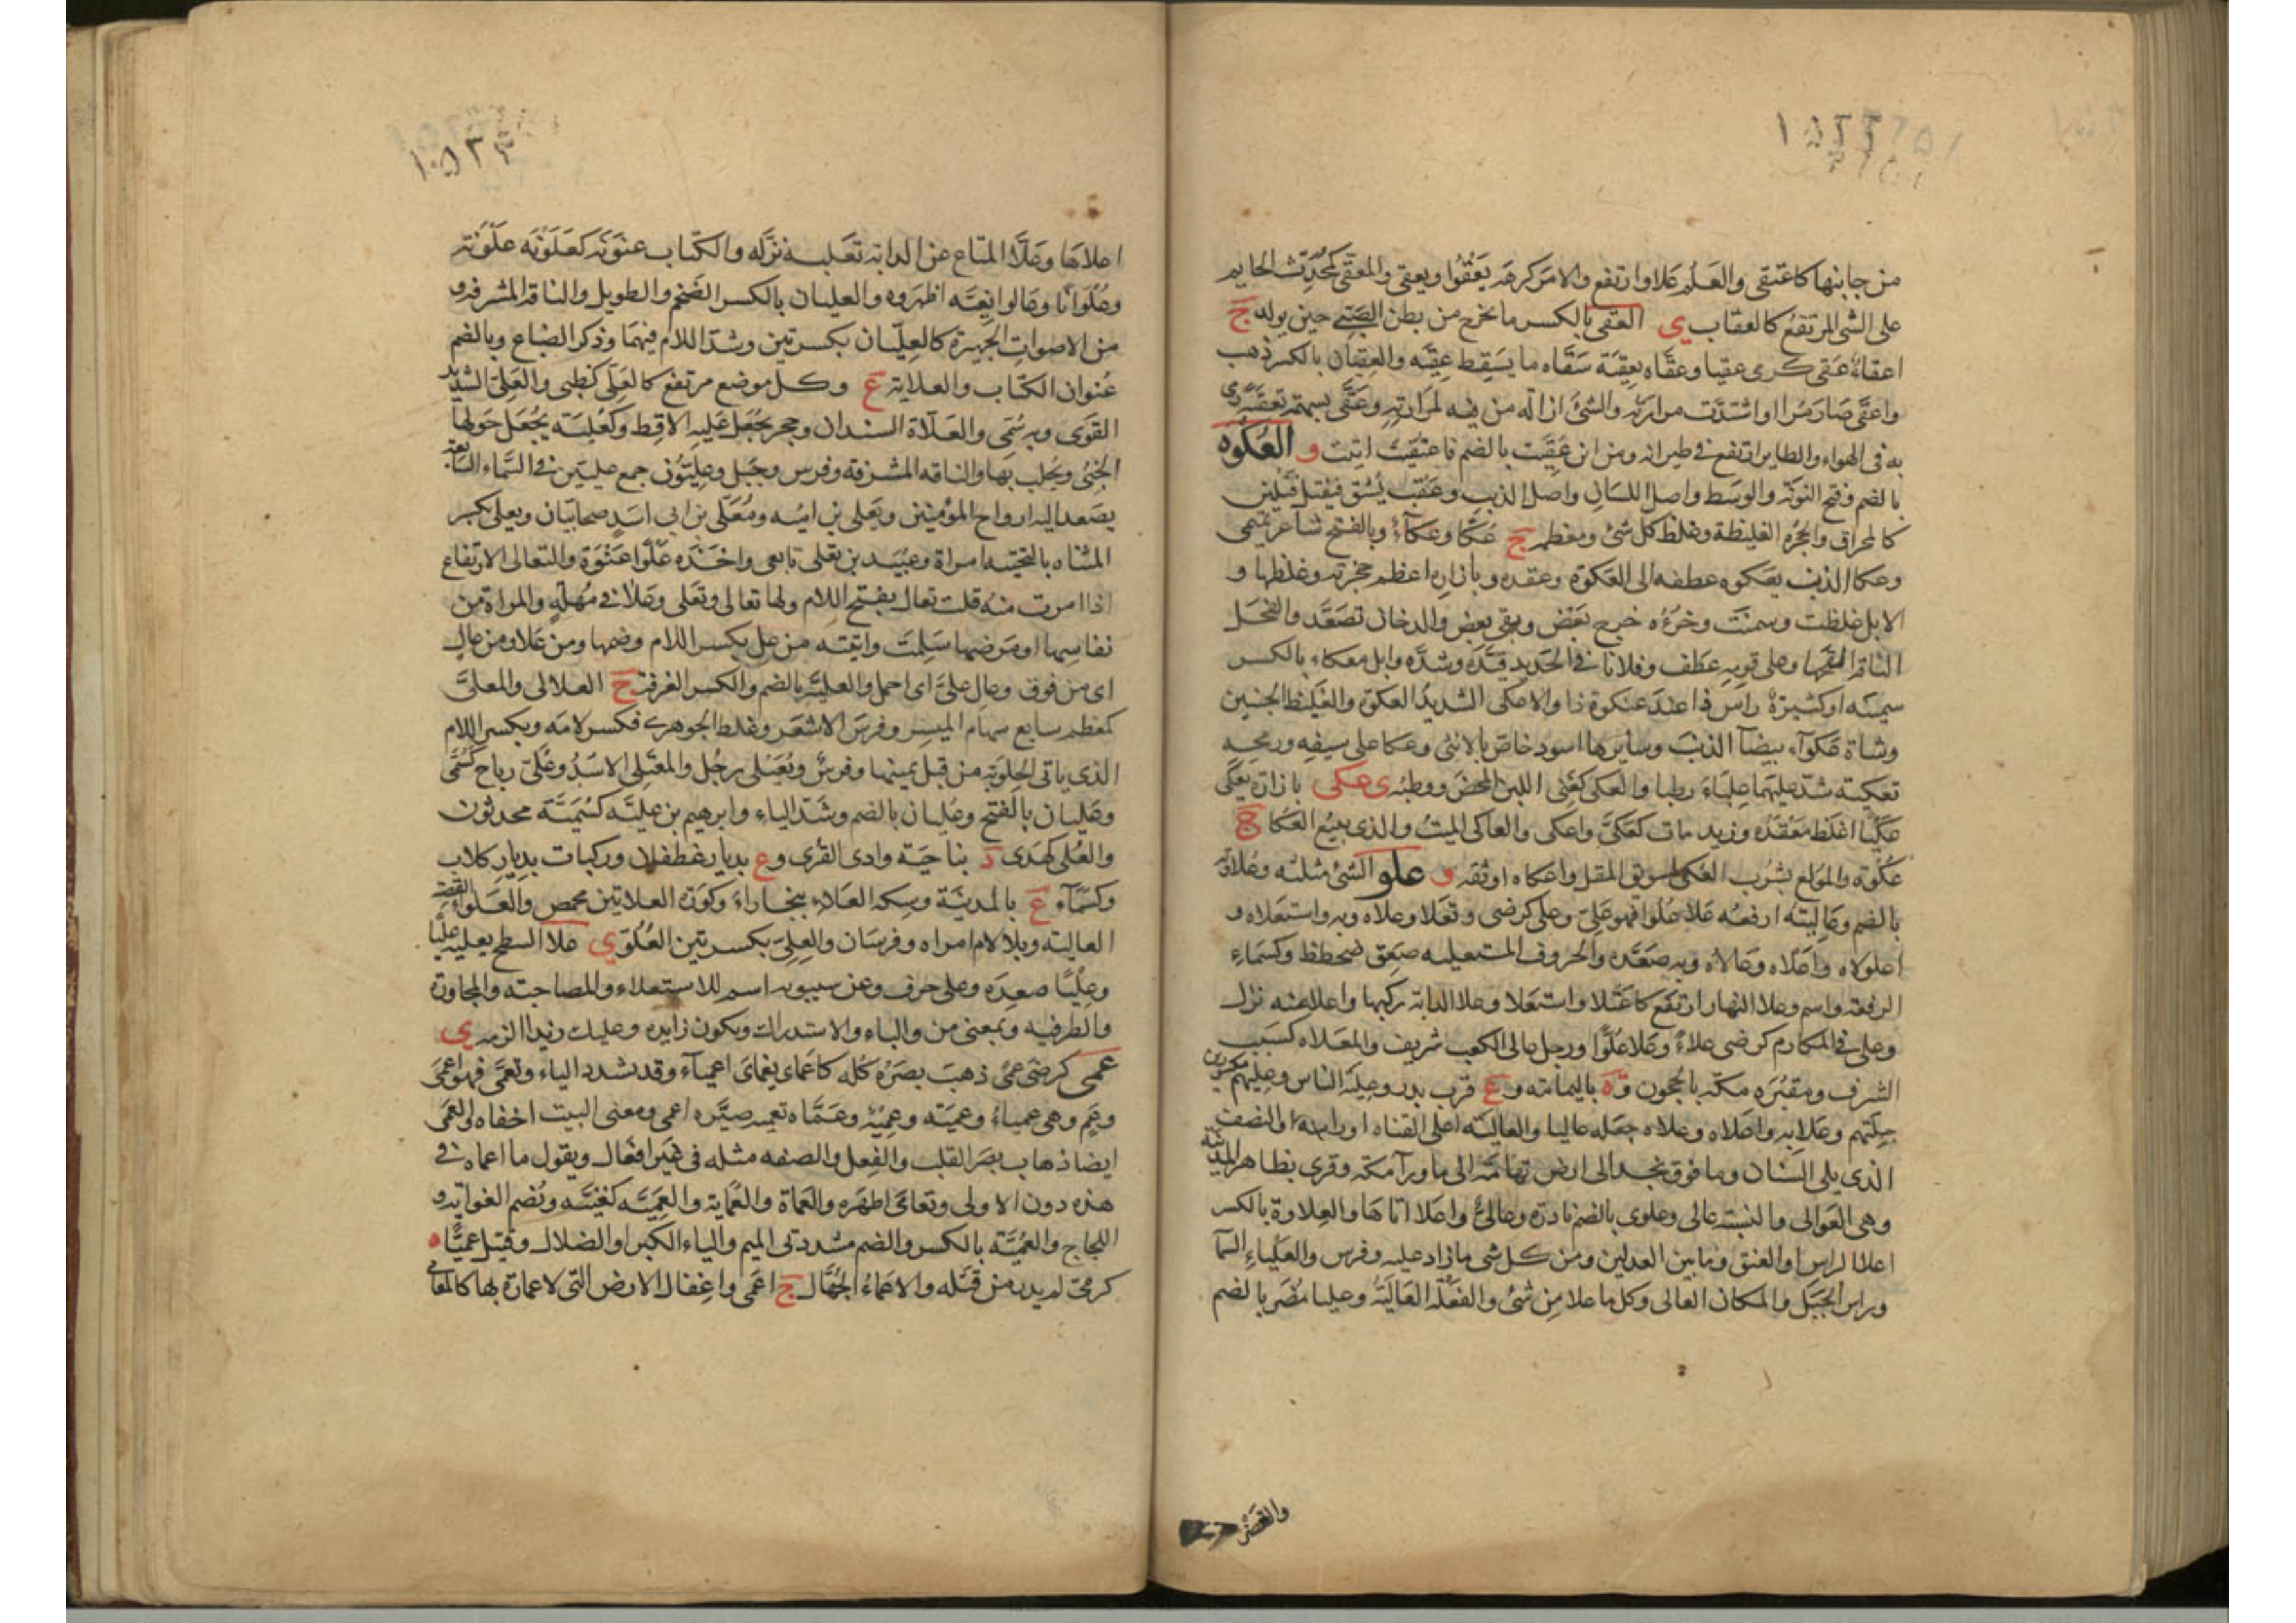 من جانبها كاعتقى والعلم علا وارتفع والامر كرهه يعقوا ويعقى والمعقى كمحدث الحايم
على الشى المرتفع كالعقاب ى العقى بالكسر ما يخرج من بطن الصبى حين يولد ج
اعقاء عقى كرمى عقيا وعقاه تعقية سقاه ما يسقط عقيه والعقيان بالكسر ذهب
واعقى صار مرا او اشتدت مرارته والشئ ازاله من فيه لمرارته وعقى بسهمه تعقية رمى
به فى الهواء والطاير ارتفع فى طيرانه ومن اين عقيت بالضم فاعتقيت اتيت و العكوة
بالضم وفتح النونة والوسط واصل اللسان واصل الذنب وعقب يشق فيفتل فتلين
كالمخراق والحجزة الغليظة وغلظ كل شئ ومعظمه ج عكا وعكاء وبالفتح شاعر تميمى
وعكا الذنب يعكوه عطفه الى العكوة وعقده وبازاره اعظم حجزته وغلظها و
الابل غلظت وسمنت وخرءه خرج بعض وبقى بعض والدخان تصعد والفحل
الناقة القحها وعلى قومه عطف وفلانا فى الحديد قيده وشده وابل معكاء بالكسر
سمينة او كثيرة راس ذا عند عنكوة ذا والاعكى الشديد العكوة والغليظ الجنبين
وشاة عكواء بيضاء الذنب وسايرها اسود خاص بالانثى وعكا على سيفه ورمحه
تعكية شد عليهما علباء رطبا والعكى كغنى اللبن المحض ووطبه ى عكى بازاره يعكى
عكيا اغلظ معقده وزيد مات كعكى واعكى والعاكى الميت والذى يبيع العكا ج
عكوة والمولع بشرب العكى لسويق المقل واعكاه اوثقه و علو الشئ مثلثه وعلاوته
بالضم وعاليته ارفعه علا علوا فهو على وعلى كرضى وتعلا وعلاه وبه واستعلاه و
اعلولاه واعلاه وعالاه وبه صعده والحروف المستعليه صعق ضخطظ وكسماء
الرفعة واسم وعلا النهار ارتفع كاعتلا واستعلا وعلا الدابة ركبها واعلا عنه نزل
وعلى فى المكارم كرضى علاء وعلا علوا ورجل عالى الكعب شريف والمعلاه كسب
الشرف ومقبره مكة بالحجون وة باليمامة و ع قرب بدر وعلية الناس وعليهم مكسورين
جلتهم وعلا به واعلاه وعلاه جعله عاليا والعالية اعلى القناه او راسها او النصف
الذى يلى السنان وما فوق نجد الى ارض تهامة الى ما ورآ مكة وقرى بظاهر المدينة
وهى العوالى والنسبة عالى وعلوى بالضم نادرة وعالى واعلا اتاها والعلاوة بالكسر
اعلا الراس او العنق وما بين العدلين ومن كل شى ما زاد عليه وفرس والعلياء السمآ
وراس الجبل والمكان العالى وكل ما علا من شئ والفعلة العالية وعليا مضر بالضم
اعلاها وعلا المتاع عن الدابة تعلية نزله والكتاب عنونه كعلونه علونة
وعلوانا وقالوا نعيه اظهروه والعليان بالكسر الضخم والطويل والناقة المشرفة و
من الاصوات الجهيرة كالعليان بكسرتين وشد اللام فيهما وذكر الضباع وبالضم
عنوان الكتاب والعلاية ع وكل موضع مرتفع كالعلى كظبى والعلى الشديد
القوى وبه سمى والعلاة السندان وحجر يجعل عليه الاقط وكعلية يجعل حولها
الخثى ويحلب بها والناقه المشرفة وفرس وجبل وعليون جمع عليين فى السماء السابعة
يصعد اليه ارواح المؤمنين ويعلى بن اميه ومعلى بن ابى اسد صحابيان ويعلى بكسر
المثناه بالتحتيه امراة وعبيد بن يعلى تابعى واخذه علوا عنوة والتعالى الارتفاع
اذا امرت منه قلت تعال بفتح اللام ولها تعالى وتعلى وعلا فى مهلة والمراة من
نفاسها او مرضها سلمت واتيته من عل بكسر اللام وضمها ومن علا ومن عال
اى من فوق وعال على اى احمل والعلية بالضم والكسر الغرفة ج العلالى والمعلى
كمعظم سابع سهام الميسر وفرس الاشعر وغلط الجوهرى فكسر لامه وبكسر اللام
الذى ياتى الحلوبة من قبل يمينها وفرس ويعيلى رجل والمعتلى الاسد وعلى رباح كسمى
وعليان بالفتح وعليان بالضم وشد الياء وابرهيم بن علية كسمية محدثون
والعلى كهدى د بناحية وادى القرى و ع بديار غطفان وركيات بديار كلاب
وكسماء ع بالمدينة وسكة العلاء ببخاراء وكورة العلاتين بحمص والعلوا القصة
العالية وبلا لام امراه وفرسان والعلى بكسرتين العلو ى علا السطح يعليه عليا
وعليا صعده وعلى حرف وعن سيبويه اسم للاستعلاء والمصاحبة والمجاوزة
والظرفيه وبمعنى من والباء والاستدراك ويكون زايده وعليك زيدا الزمه ى
عمى كرضى عمى ذهب بصره كله كاعماى يعماى اعمياء وقد تشدد الياء وتعمى فهو اعمى
وعم وهى عمياء وعمية وعمية وعماه تعميه صيره اعمى ومعنى البيت اخفاه والعمى
ايضا ذهاب بصر القلب والفعل والصفه مثله فى غير افعال ويقول ما اعماه فى
هذه دون الاولى وتعامى اظهره والعماة والعماية والعمية كغنية وتضم الغواية و
اللجاج والعمية بالكسر والضم مشددتى الميم والياء الكبر او الضلال وقتيل عميا ه
كرمى لم يدر من قتله والاعماء الجهال ج اعمى واغفال الارض التى لا عمارة بها كالمعامى